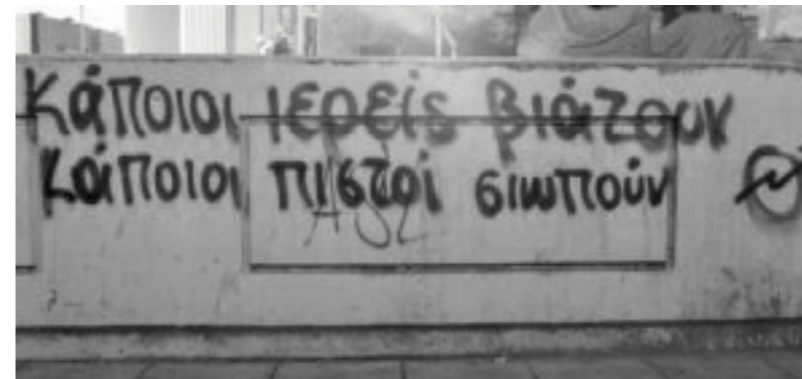 κάποιοι ιερείς βιάζουν
κάποιοι πιστοί σιωπούν